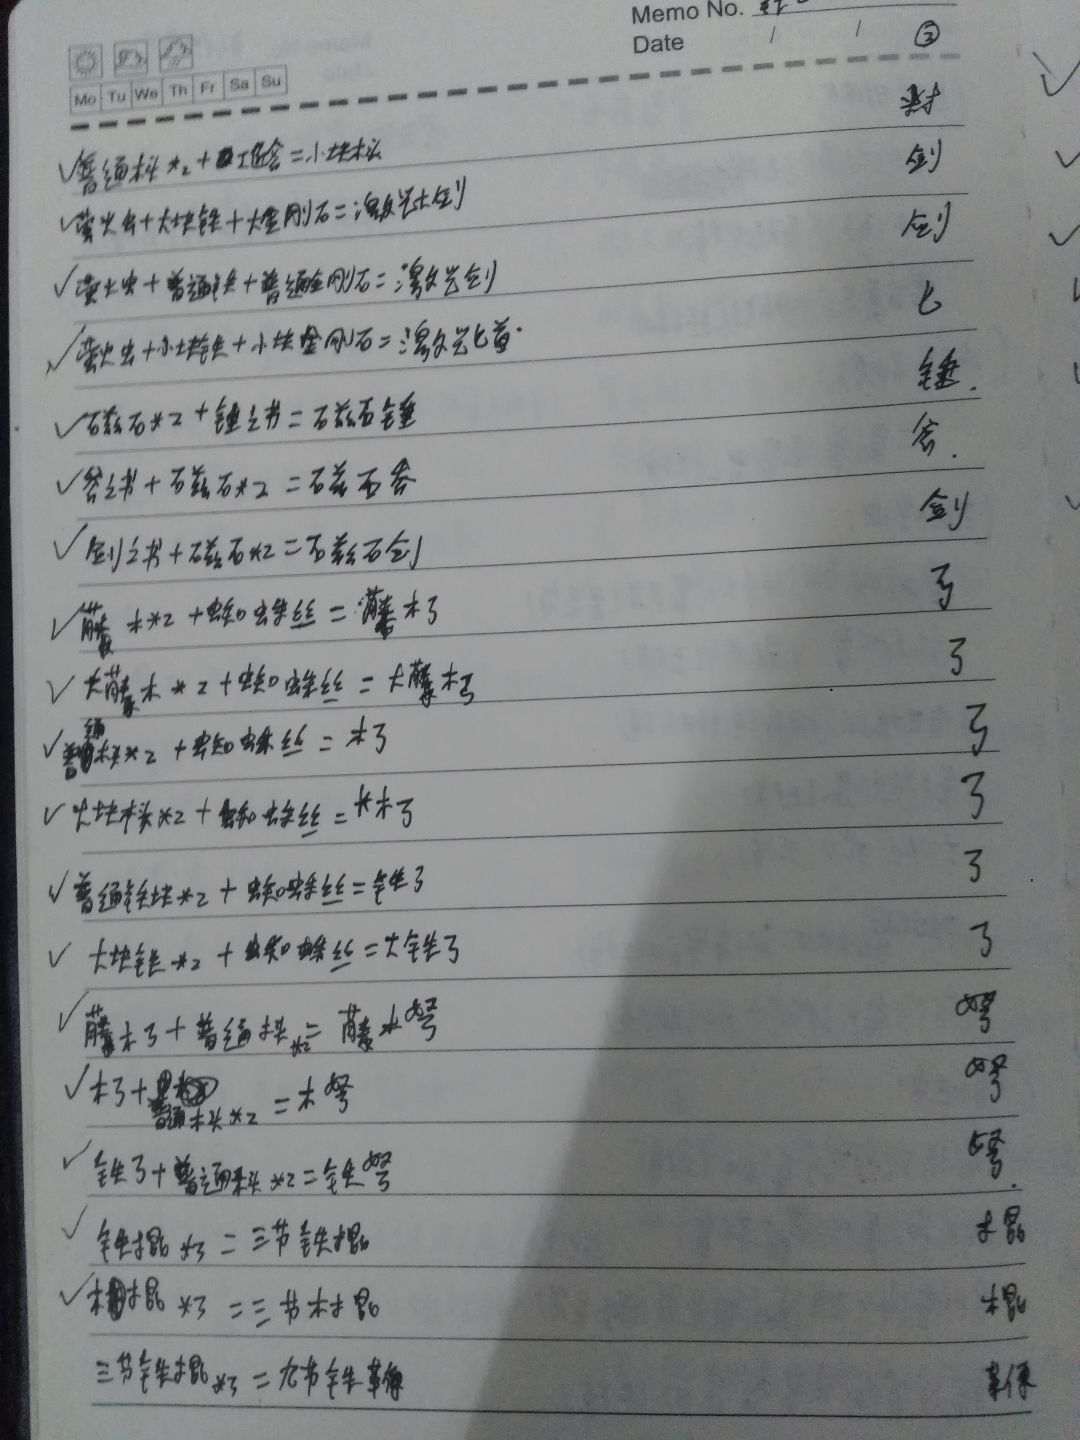 Memo No.
Date / / ②
Mo Tu We Th Fr Sa Su
✓普通木头*2+工作台=小块木头 材
✓萤火虫+大块铁+大金刚石=激光大剑 剑
✓萤火虫+普通铁+普通金刚石=激光剑 剑
✓萤火虫+小块铁+小块金刚石=激光匕首. 匕
✓石兹石*2+锤之书=石兹石锤 锤.
✓斧之书+石兹石*2=石兹石斧 斧.
✓剑之书+石兹石*2=石兹石剑 剑
✓藤木*2+蜘蛛丝=藤木弓 弓
✓大藤木*2+蜘蛛丝=大藤木弓 弓
✓普通木头*2+蜘蛛丝=木弓 弓
✓大块木头*2+蜘蛛丝=大木弓 弓
✓普通铁块*2+蜘蛛丝=铁弓 弓
✓大块铁*2+蜘蛛丝=大铁弓 弓
✓藤木弓+普通木头*2=藤木弩 弩
✓木弓+普通木头*2=木弩 弩
✓铁弓+普通木头*2=铁弩 弩.
✓铁棍*3=三节铁棍 棍
✓木棍*3=三节木棍 棍
三节铁棍*3=九节铁鞭 鞭